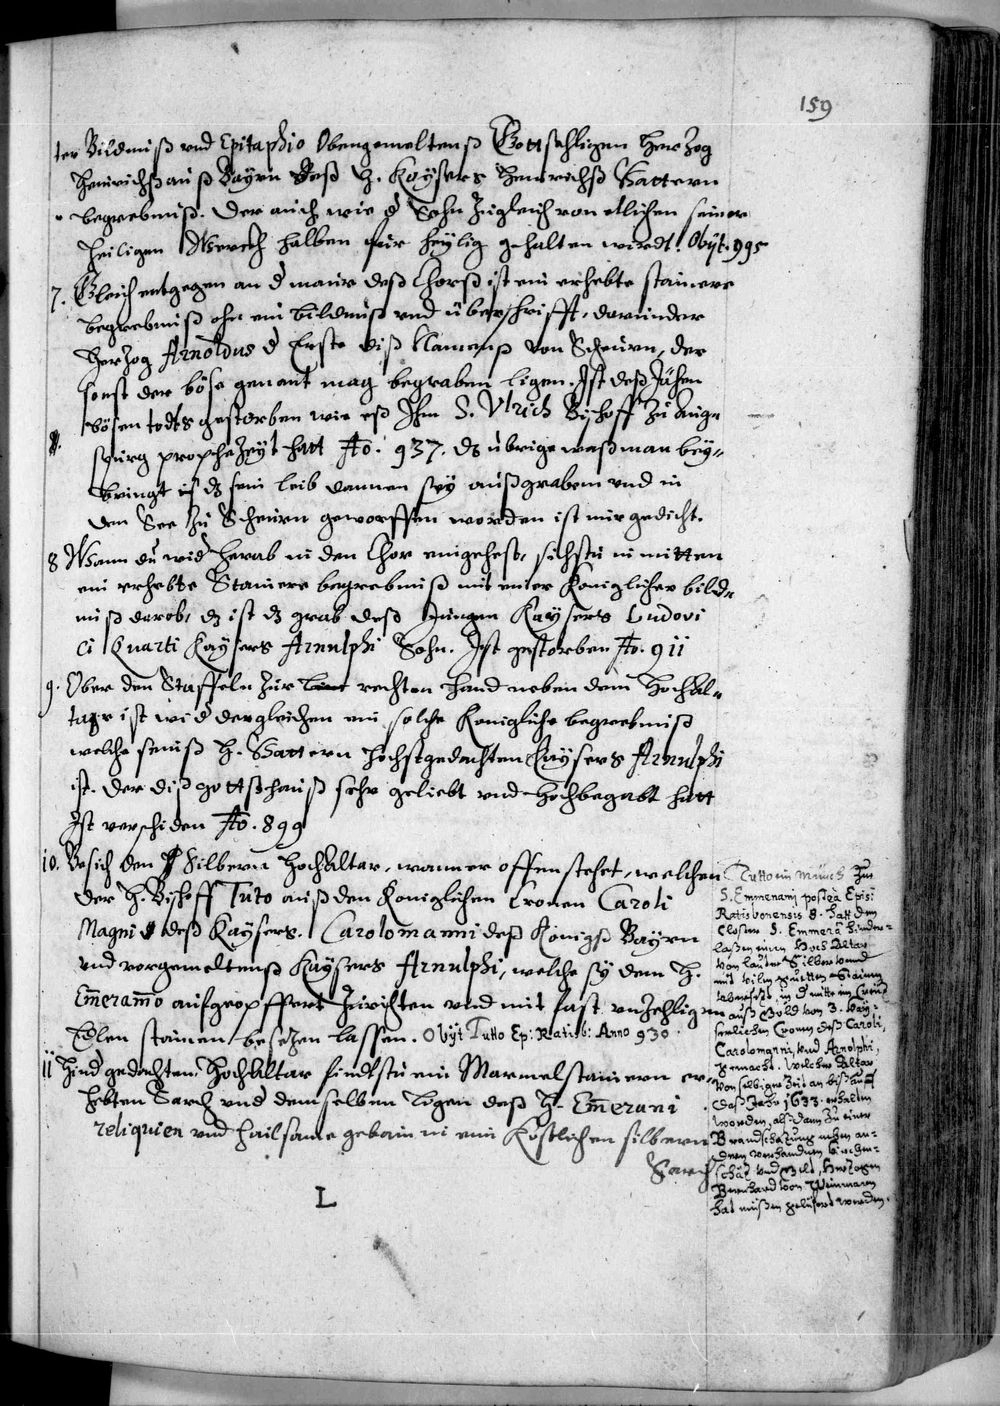 159
ter Bildniß vnd Epitaphio Obengemeltenß Gottsehligen Herzog
Heinrichß auß Bayrn deß H. Kaysers Heinrichß Vattern
begrebniß. Der auch wie d Sohn zugleich von etlichen seiner
heiligen Werckh halben für heylig gehalten wirdt. Obijt. 995
7. Gleich entgegen an d maur deß Chorß ist ein erhebte stainere
begrebniß ohn ein bildnuß vnd überschrifft, darunder
Herzog Arnoldus d Erste diß Namenß von Scheurn, der
sonst der böse genant mag begraben ligen. Ist deß Jähen
bösen todts gestorben wie eß Ihm S. Vlrich Bischoff zu Aug-
spurg prophezeyt hatt Ao. 937. ds übrige waß man bey-
bringt als ds sein leib dannen sey außgraben vnd in
den See zu Scheurn geworffen worden ist nur gedicht.
8 Wann du wid herab in den Chor eingehest, sichstu in mitten
ein erhebte Stainere begrebniß mit einer Königlicher bild-
niß darob, dz ist dz grab deß Jungen Kaysers Ludovi
ci Quarti Kaysers Arnulphi Sohn. Ist gestorben Ao. 911
9. Ober den Staffeln zur rechten hand neben dem Hochal-
tar ist wid dergleichen ein solche Königliche begrebniß
welche seineß H. Vattern hochstgedachten Kaysers Arnulphi
ist. Der diß gottßhauß sehr geliebt vnd hochbegabt hatt
Ist verschiden Ao. 899
10. Besich den Silbern Hochaltar, wann er offen stehet, welchen
der H. Bischoff Tuto auß den Königlichen Cronen Caroli
Magni deß Kaysers. Carolomanni deß Königß Bayrn
vnd vorgemeltenß Kaysers Arnulphi, welche sy dem H.
Em̄eram̄o aufgeopffert zurichten vnd mit fast vnzehligen
Edlen stainen besezen lassen. Obijt Tutto Ep: Ratisb: Anno 930.
11 Hind gedachten Hochaltar findstu ein Marmelstainern er-
hebten Sarch vnd demselben ligen deß H. Em̄erani
reliquien vnd hailsame gebain in ein Köstlichen silbern
Sarch
L
Tutto ein Münch zu
S. Emmerani postea Epis:
Ratisbonensis 8. hatt dem
Closter S. Emmera hinder-
laßen einen Hoch Altar
von lauter Silber vnnd
mit vilen guetten Stainen
versezt, in d mitte ein Creuz
auß Gold von 3. Kay-
serlichen Cronen deß Caroli,
Carolomanni, vnd Arnolphi,
gemacht. Welcher Altar
von selbiger Zeit an biß auff
daß Jahr 1633. erhalten
worden, alß dann zu einer
Brandschazung neben an-
dern verhandnen Kirchen-
schäz vnd Gelt, Herzogen
Bernhard von Weinmarn
hat müßen gelifert werden.